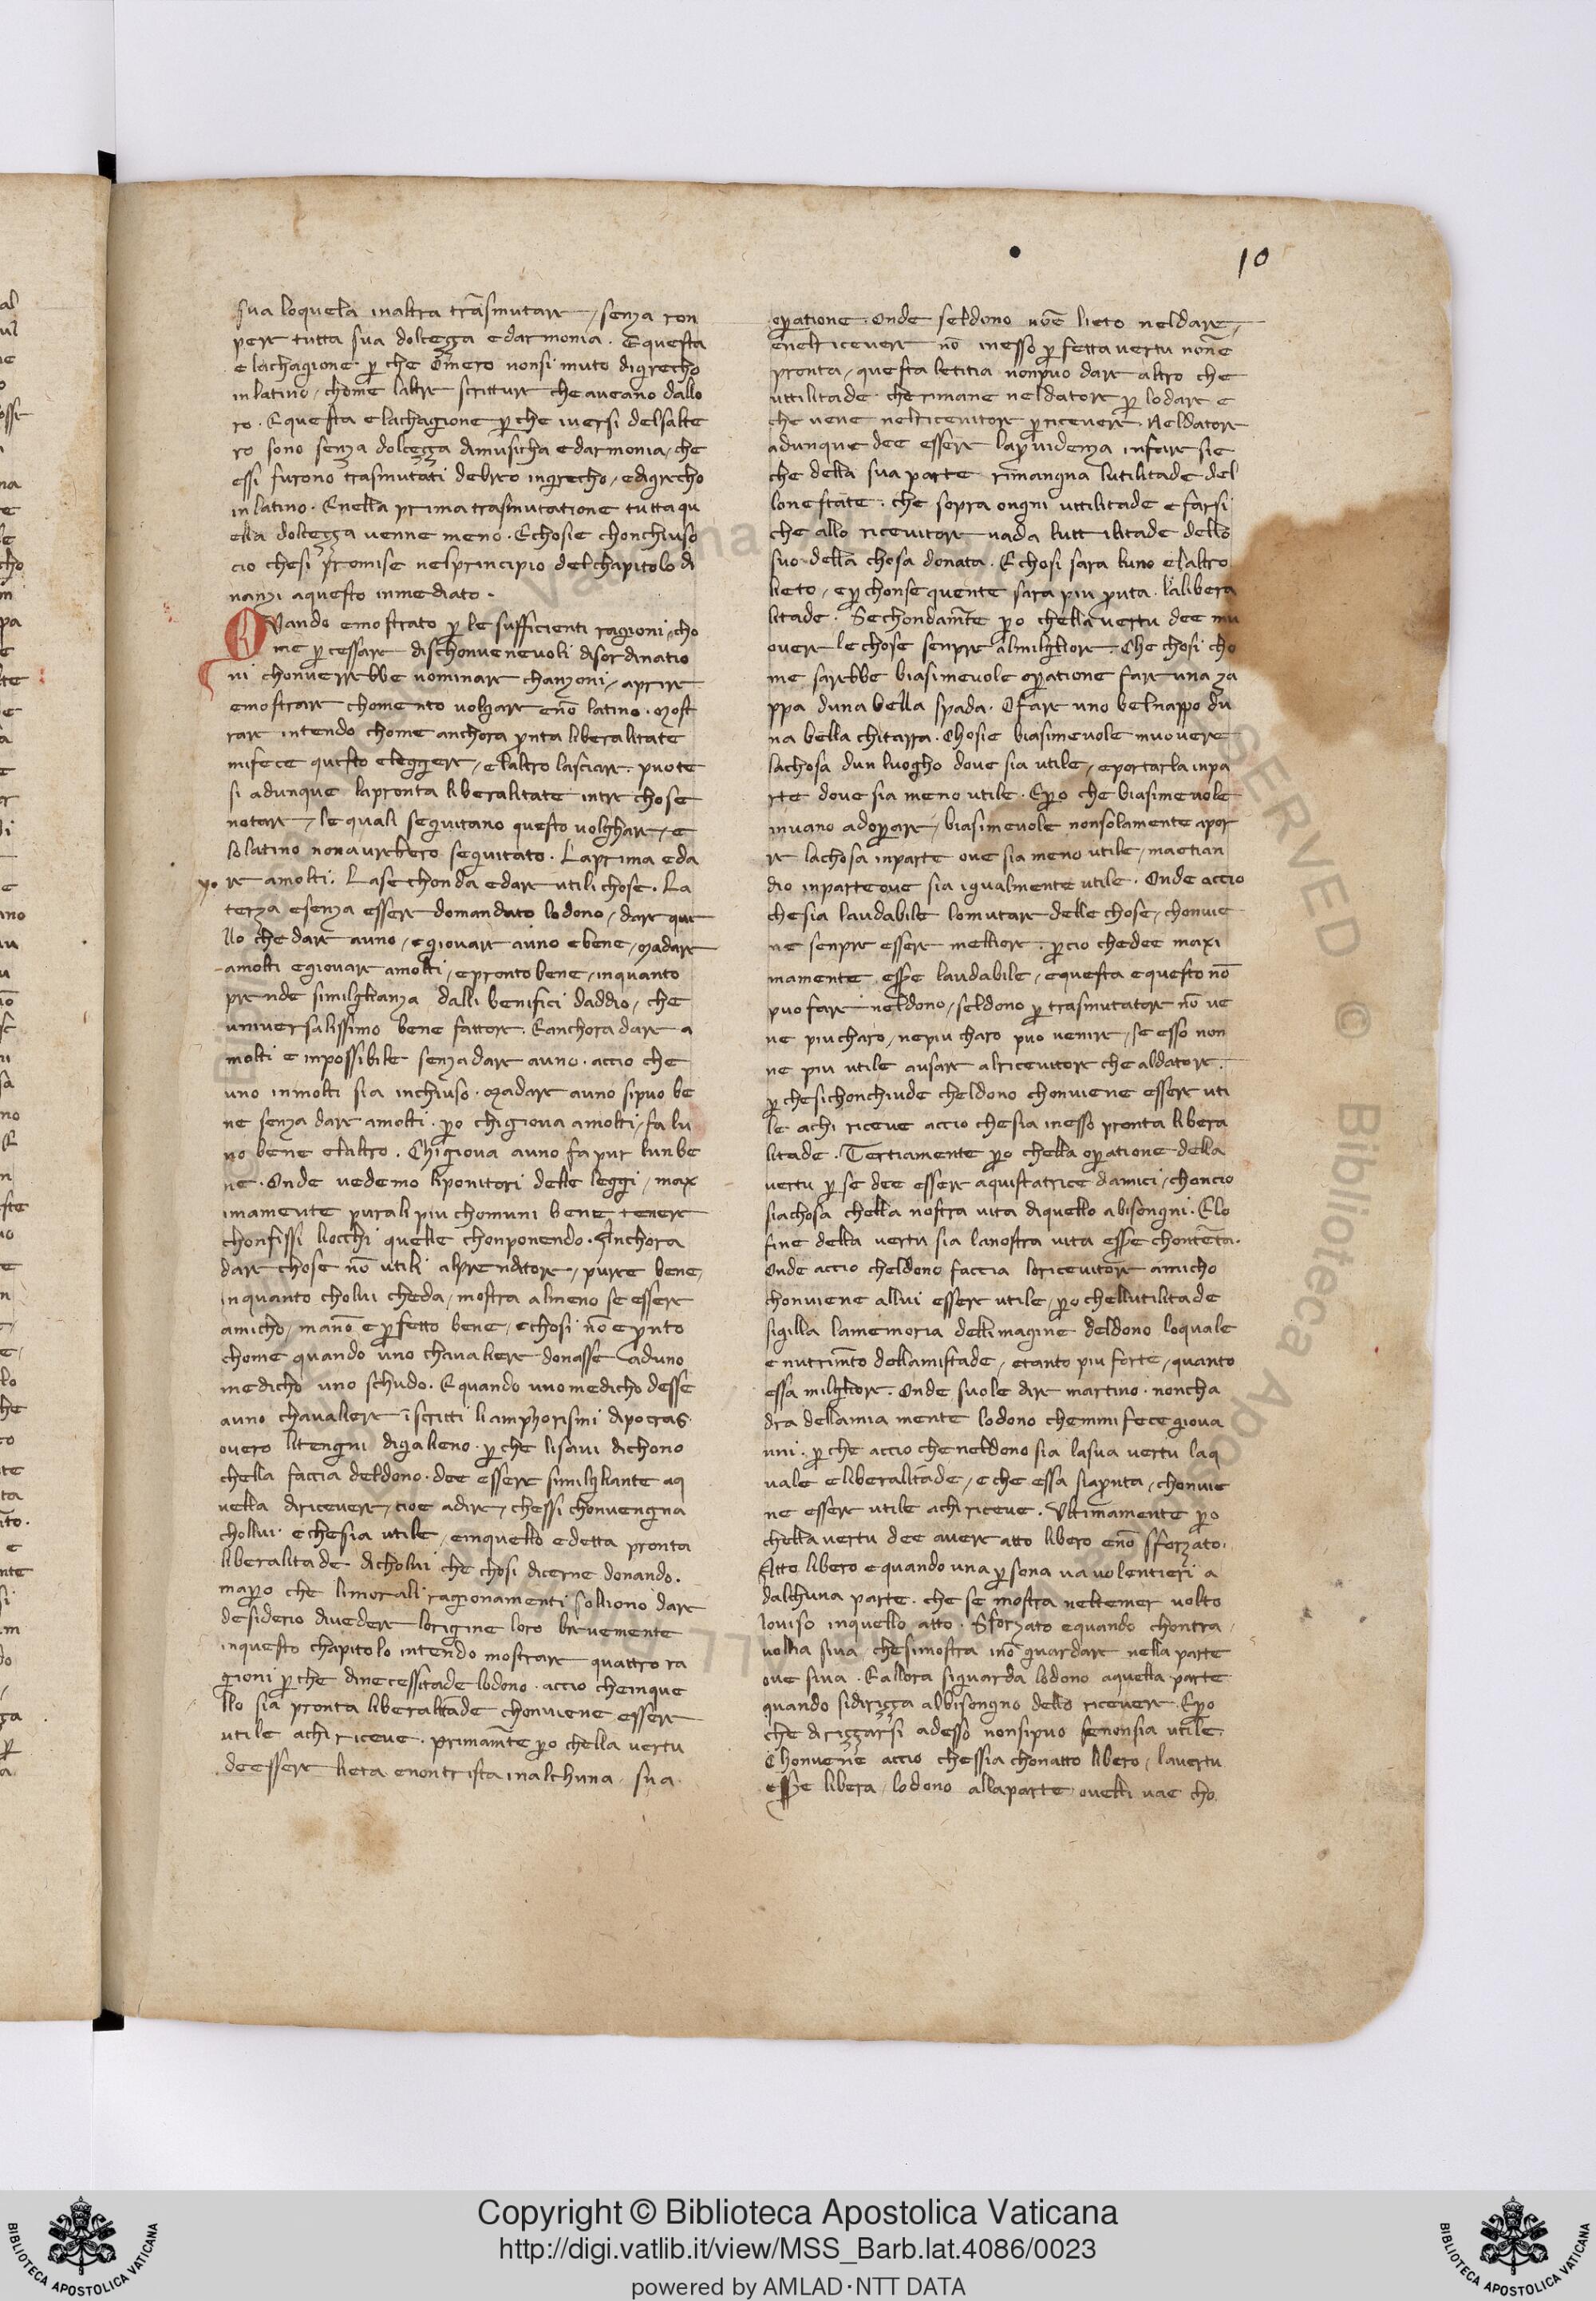 10
sua loquela inaltra trãsmutare / senza ron
pere tutta sua dolcezza edarmonia . Equesta
e lachagione p̱ che Omero nonsi muto digrecho
inlatino / chome laltre scritture cheaveano dallo
ro . Equesta elachagione p̱ che iversi delsalte
ro sono senza dolcezza dimusicha edarmonia / che
essi furono trasmutati debreo ingrecho / edigrecho
inlatino . Enella prima trasmutatione tutta qu
ella dolcezza venne meno . Echosie chonchiuso
cio chesi promise nelprincipio delchapitolo di
nanzi aquesto inmediato .
Quando emostrato p̱ le sufficienti ragioni / cho
me p̱ cessare dischonvenevoli disordinatio
ni chonverrebbe nominare chanzoni / aprire
emostrare chomento volgare enõ latino . most
rare intendo chome anchora pronta liberalitate
mifece questo eleggere / elaltro lasciare . puote
si adunque lapronta liberalitate intre chose
notare / le quali seguitano questo volghare / e
lolatino nonavrebero seguitato . Laprima eda
re amolti . Lasechonda edare utili chose . La
terza esenza essere domandato lodono / dare que
llo che dare auno / egiovare auno ebene / madare
amolti egiovare amolti / epronto bene / inquanto
prende similglianza dalli benifici daddio / che
universalissimo bene fattore . Eanchora dare a
molti e inpossibile senza dare auno . accio che
uno inmolti sia inchiuso . madare auno sipuo be
ne senza dare amolti . p̱o chi giova amolti / fa lu
no bene elaltro . Chi giova auno fa pur lun be
ne . Onde vedemo liponitori delle leggi / max
imamente purali piu chomuni bene tenere
chonfissi liocchi quelle chonponendo . Anchora
dare chose nõ utili alprenditore / purre bene /
inquanto cholui cheda / mostra almeno se essere
amicho / manõ e p̱fetto bene / echosi nõ e pronto
chome quando uno chavaliere donasse aduno
medicho uno schudo . Equando uno medicho desse
auno chavaliere ĩscritti liamphorismi dipocras
overo litengni digalieno . p̱ che lisavi dichono
chella faccia deldono . dee essere similgliante aq
uella diricevere / cioe adire / chessi chonvengna
chollui . echesia utile / einquello edetta pronta
liberalitade dicholui che chosi dicerne donando .
map̱o che limorali ragionamenti solliono dare
desiderio divedere lorigine loro brevemente
inquesto chapitolo intendo mostrare quattro ra
gioni p̱ che dinecessitade lodono . accio cheinque
llo sia pronta liberalitade chonviene essere
utile achi riceve . primamẽte p̱o chella vertu
deessere lieta enontrista inalchuna . sua
op̱atione . Onde seldono nõe lieto neldare /
enelricevere nõ inesso p̱fetta vertu nonẽ
pronta / questa letitia nonpuo dare altro che
uttilitade . cherimane neldatore p̱ lodare e
che vene nelricevitore p̱ricevere . Neldatore
adunque dee essere laprovidenza infare sie
che della sua parte rimangna lutilitade del
lonestate . che sopra ongni uttilitade efarsi
che allo ricevitore vada lutt ilitade dello
suo della chosa donata . Echosi sara luno elaltro
lieto / e p̱ chonsequente sara piu pronta . lalibera
litade . Sechondamẽte p̱o chella vertu dee mu
overe le chose senpre almilgliore . Che chosi cho
me sarebbe biasimevole op̱atione fare una za
ppa duna bella spada . Ofare uno belnappo du
na bella chitarra . Chosie biasimevole muovere
lachosa dun luogho dove sia utile / eportarla inpa
rte dove sia meno utile . Ep̱o che biasimevole
invano adop̱are / biasimevole nonsolamente apor
re lachosa inparte ove sia meno utile / maetian
dio inparteove sia igualmente utile . Onde accio
chesia laudabile lomutare delle chose / chonvie
ne senpre essere melliore . p̱cio chedee maxi
mamente esse laudabile / equesta equesto nõ
puo fare neldono / seldono p̱ trasmutatore nõ ve
ne piucharo / nepiu charo puo venire / se esso non
ne piu utile ausare alricevitore che aldatore .
p̱ chesichonchiude cheldono chonviene essere uti
le achi riceve accio chesia inesso pronta libera
litade . Tertiamente p̱o chella op̱atione della
vertu p̱ se dee essere aquistatrice damici / choncio
siachosa chella nostra vita diquello abisongni . Elo
fine della vertu sia lanostra vita esse chontẽta .
Onde accio cheldono faccia loricevitore amicho
chonviene allui essere utile / p̱o chellutilitade
sigilla lamemoria dellimagine deldono loquale
e nutrimẽto dellamistade / etanto piu forte / quanto
essa milgliore . Onde suole dire martino . noncha
dra dellamia mente lodono chemmi fece giova
nni . p̱ che accio che neldono sia lasua vertu laq
uale eliberalitade / e che essa siapronta / chonvie
ne essere utile achi riceve . Ultimamente p̱o
chella vertu dee avere atto libero enõ sforzato .
Atto libero equando una p̱sona va volentieri a
dalchuna parte . che se mostra neltener volto
loviso inquello atto . Sforzato equando chontra
vollia siva / chesimostra inõ guardare nella parte
ove siva . Eallora siguarda lodono aquella parte
quando sidirizza albisongno dello ricevere . Ep̱o
che dirizzarsi adesso nonsipuo senonsia utile .
Chonvene accio chessia chonatto libero / lavertu
esse libera / lodono allaparte ovelli vae cho
Copyright © Biblioteca Apostolica Vaticana
http://digi.vatlib.it/view/MSS_Barb.lat.4086/0023
powered by AMLAD·NTT DATA
BIBLIOTECA APOSTOLICA VATICANA
BIBLIOTECA APOSTOLICA VATICANA